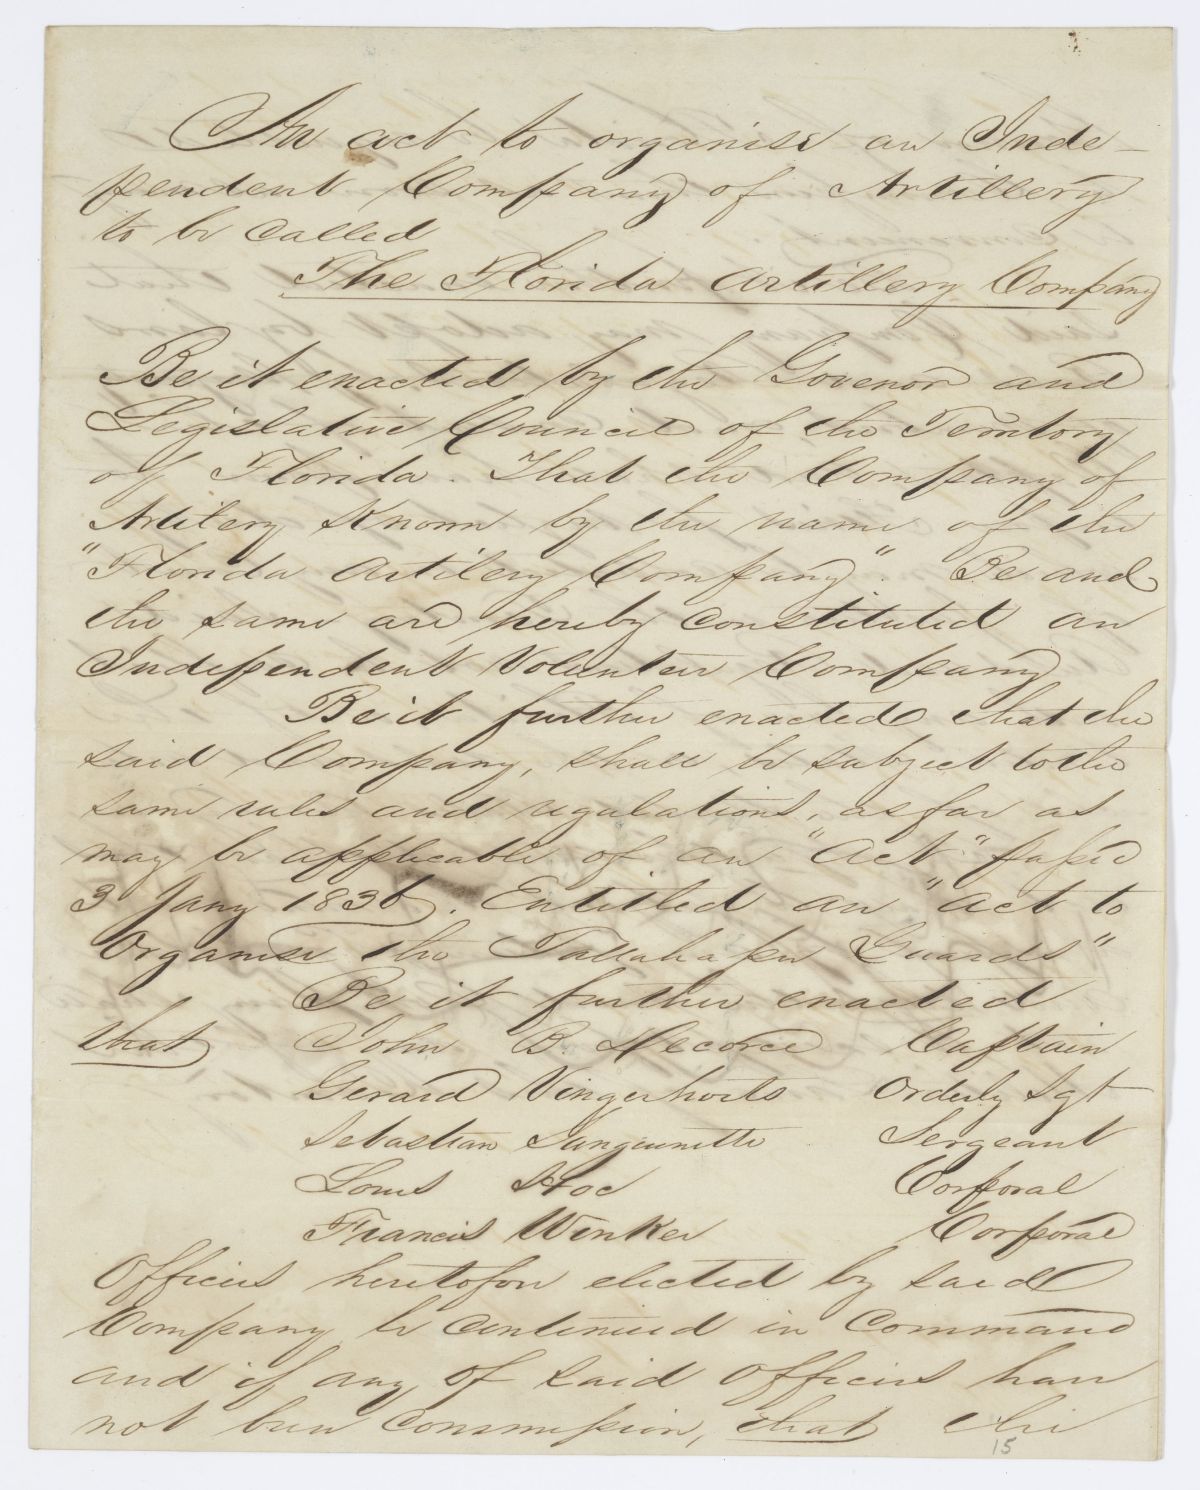 An act to organise an Inde-
pendent Company of Artillery
to be called
The Florida Artillery Company
Be it enacted by the Govenor and
Legislative Council of the Territory
of Florida. That the Company of
Artilery Known by the name of the
"Florida Artilery Company". Be and
the same are hereby constituted an
Independent Volunteer Company
Be it further enacted that the
said Company, shall be subject to the
same rules and regulations, as far as
may be applicable of an "Act" passed
3 Jany 1836. Entitled an "act to
Organise the Tallahassee Guards"
Be it further enacted
that John B. Captain
Gerard Vingerhoets Orderly Sgt
Sebastian Sergeant
Louis Corporal
Francis Winker Corporal
Officers heretofore elected by said
Company be continued in Command
and if any of said Officers have
not been Commission, that the
15